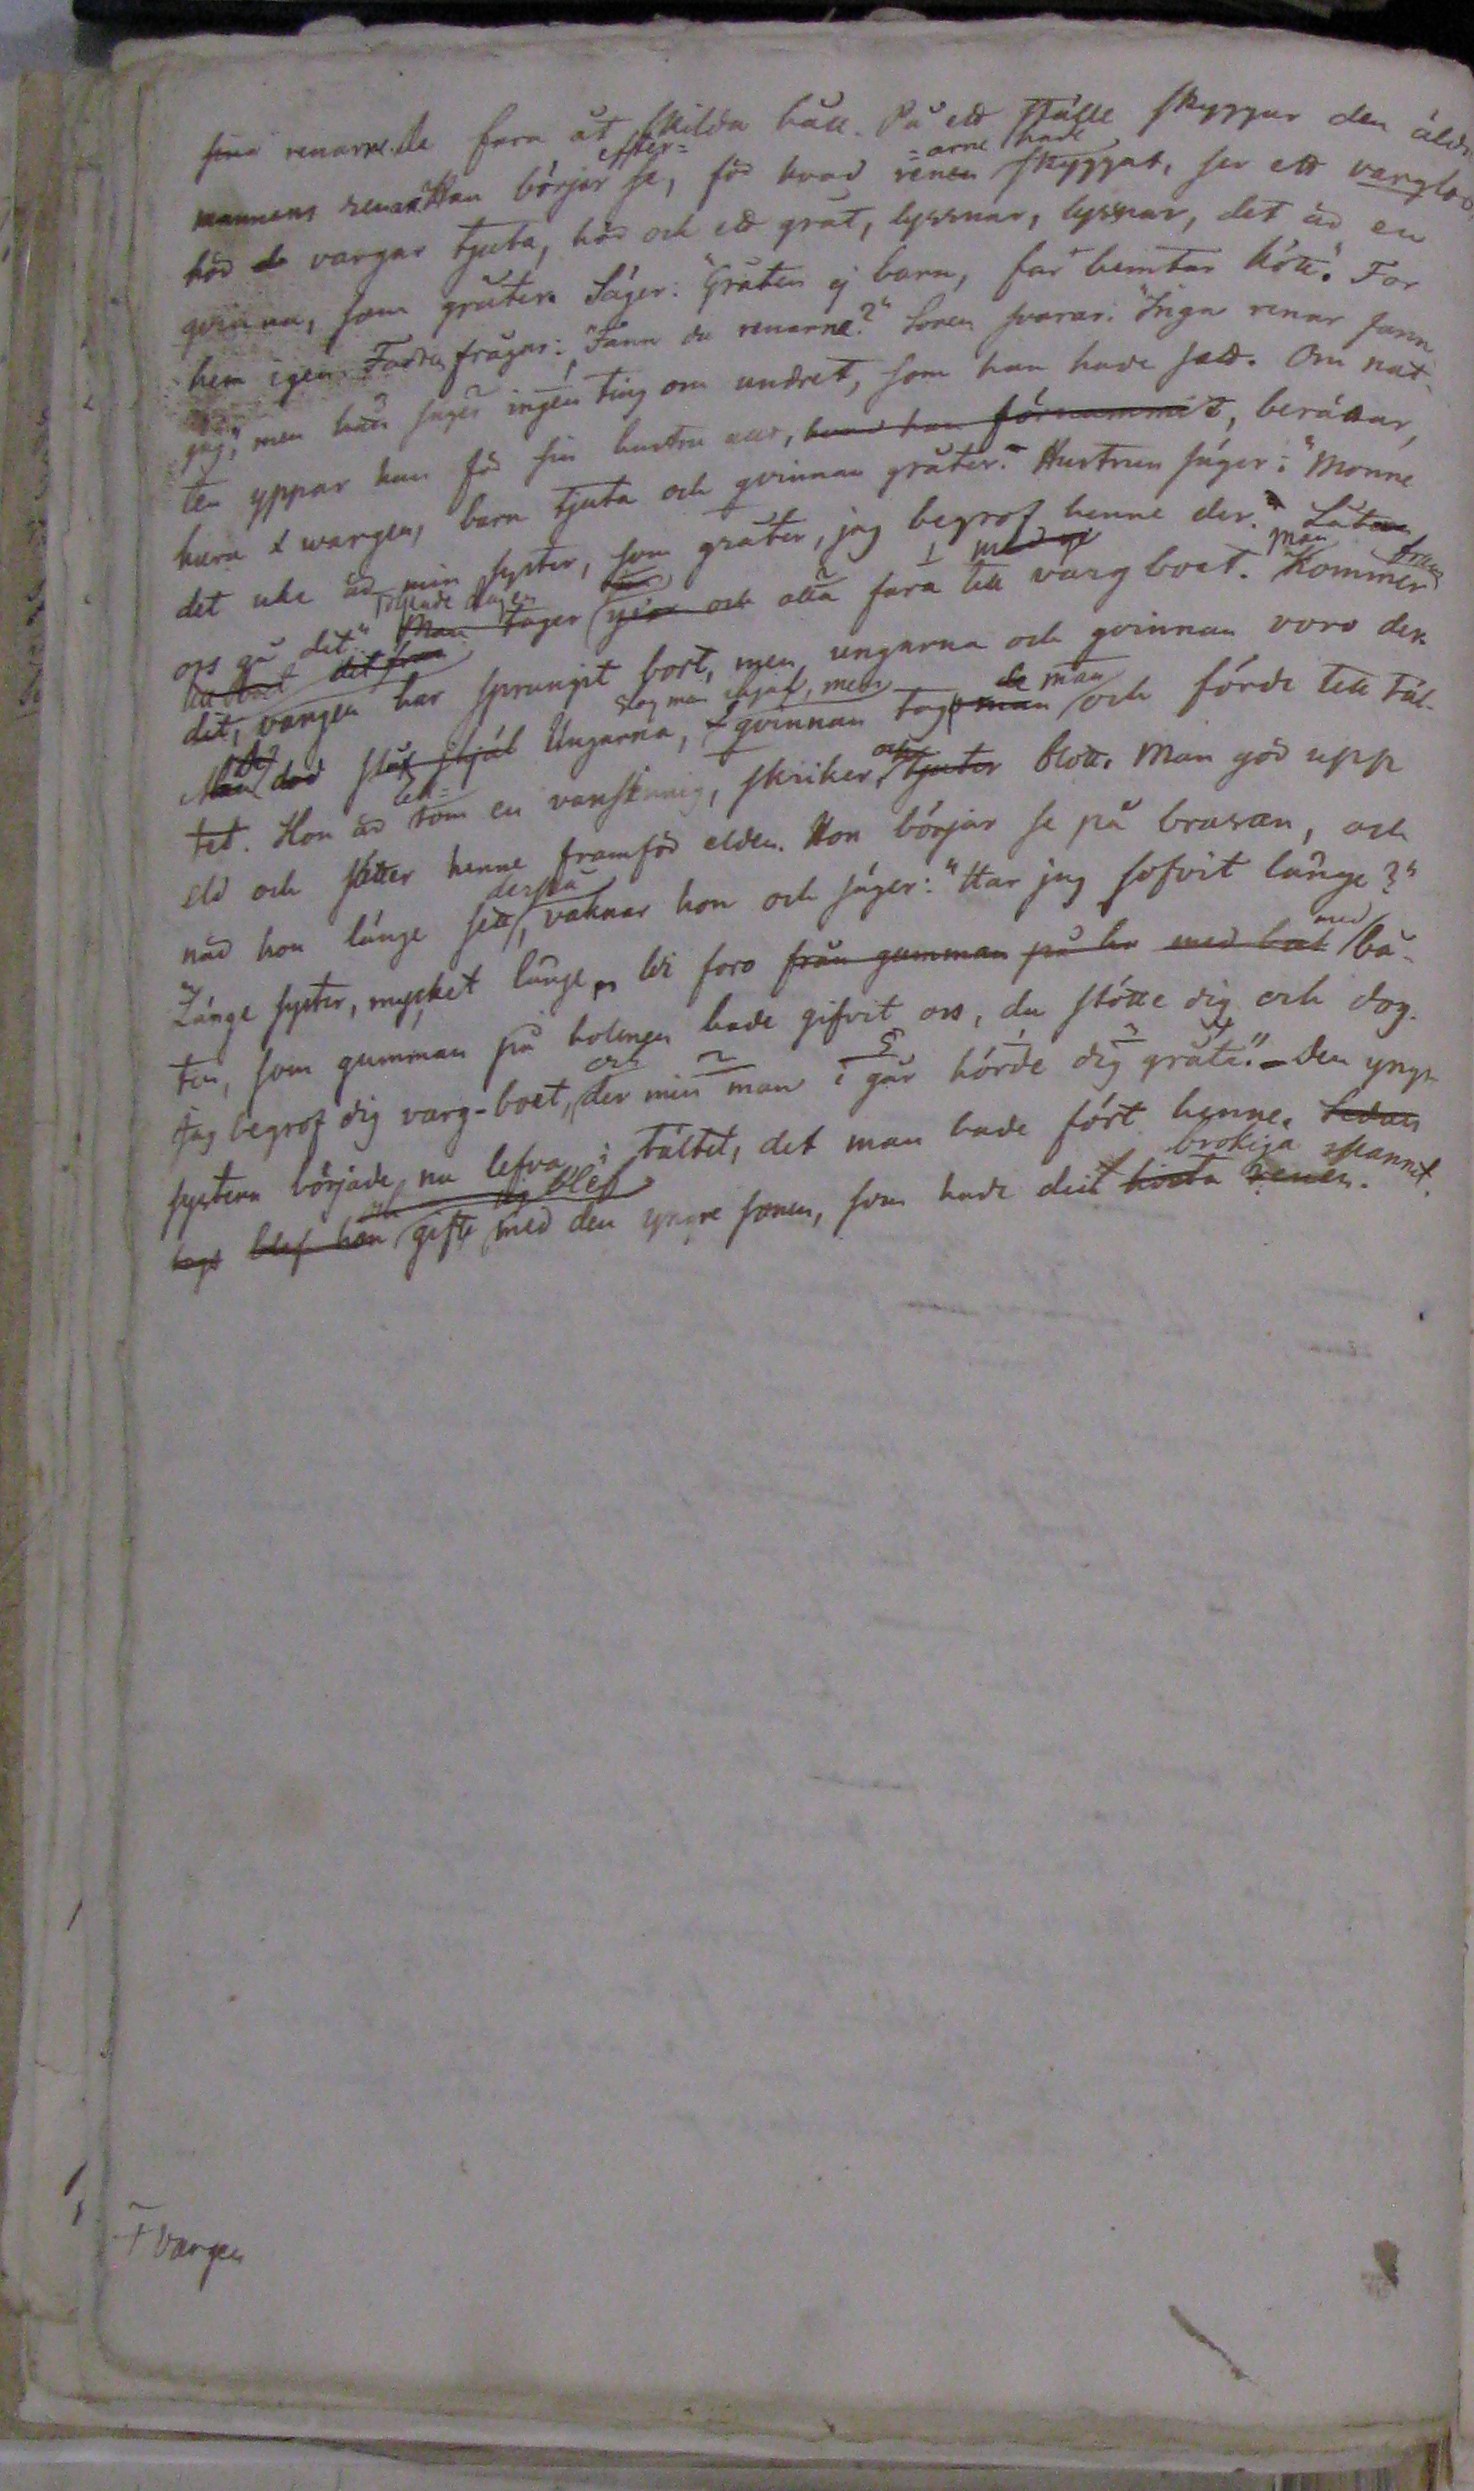 sina renarne. De fara åt skilda håll. På ett ställe skyggar den äldre
efter= =arne hade
mannens renar. Han börjar se, för hvad renen skyggat, ser ett varglo,
hör de vargar tjuta, hör ock ett gråt, lyssnar, lyssnar, det är en
qvinna, som gråter. Säger: "Gråten ej barn, far hemtar kött." Far
hem igen. Fadren frågar: "Fann du renarne?" Sonen svarar: "Inga renar fann
jag", men han säger ingen ting om undret, som han hade sett. Om nat-
ten yppar han för sin hustru allt, hvad han förnummit, berättar,
huru wargen, barn tjuta och qvinnan gråter. Hustrun säger: "Monne
det icke är min syster, som gråter, jag begrof henne der." Låtom
Följande dagen man fram
oss gå dit." Man tager och alla fara till varg boet. Kommer
till boet det fram
dit, vargen har sprungit bort, men ungarna och qvinnan voro der.
slog man ihjäl, men de man
Man slår ihjäl Ungarna, qvinnan tog man och förde till täl-
och
tet. Hon är som en vansinnig, skriker, tjuter blott. Man gör upp
eld och sätter henne framför elden. Hon börjar se på brasan, och
derpå
när hon länge sett, vaknar hon och säger: "Har jag sofvit länge?"
med
"Länge syster, mycket länge, Vi foro från gumman på ho med båt bå-
ten, som gumman på holmen hade gifvit oss, du stötte dig och dog.
och
Jag begrof dig varg-boet, der min man i går hörde dig gråta." Den yngre
systern började nu lefva i tältet, det man hade fört henne. Sedan
och blef brokiga spannet.
blef hon gifte med den yngre sonen, som hade det hvita renen.
+ Vargen